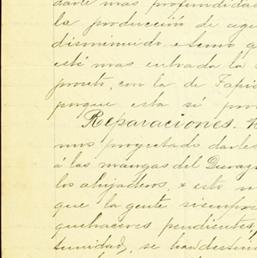 darle mas profundidad
la producción de agu
disminuido, e temo q
esté mas entrada la
pronto, con la de Tapia
porque esta sí pro
Reparaciones. H
mos proyectado darle
á las mangas del Durag
los ahijaderos, e esto n
que la gente siempre
quehaceres pendientes,
tunidad, se han destin